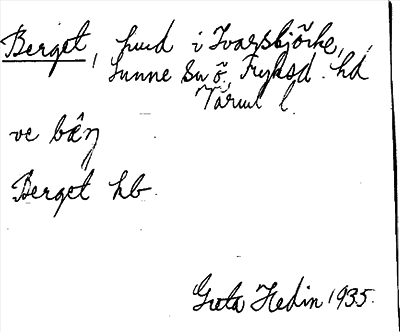 Berget, hmd i Ivarsbjörke,
Sunne sn ö, Fryksd. hd
Värml l.
ve bæ̂ŋ
Berget hb.
Greta Hedin 1935.